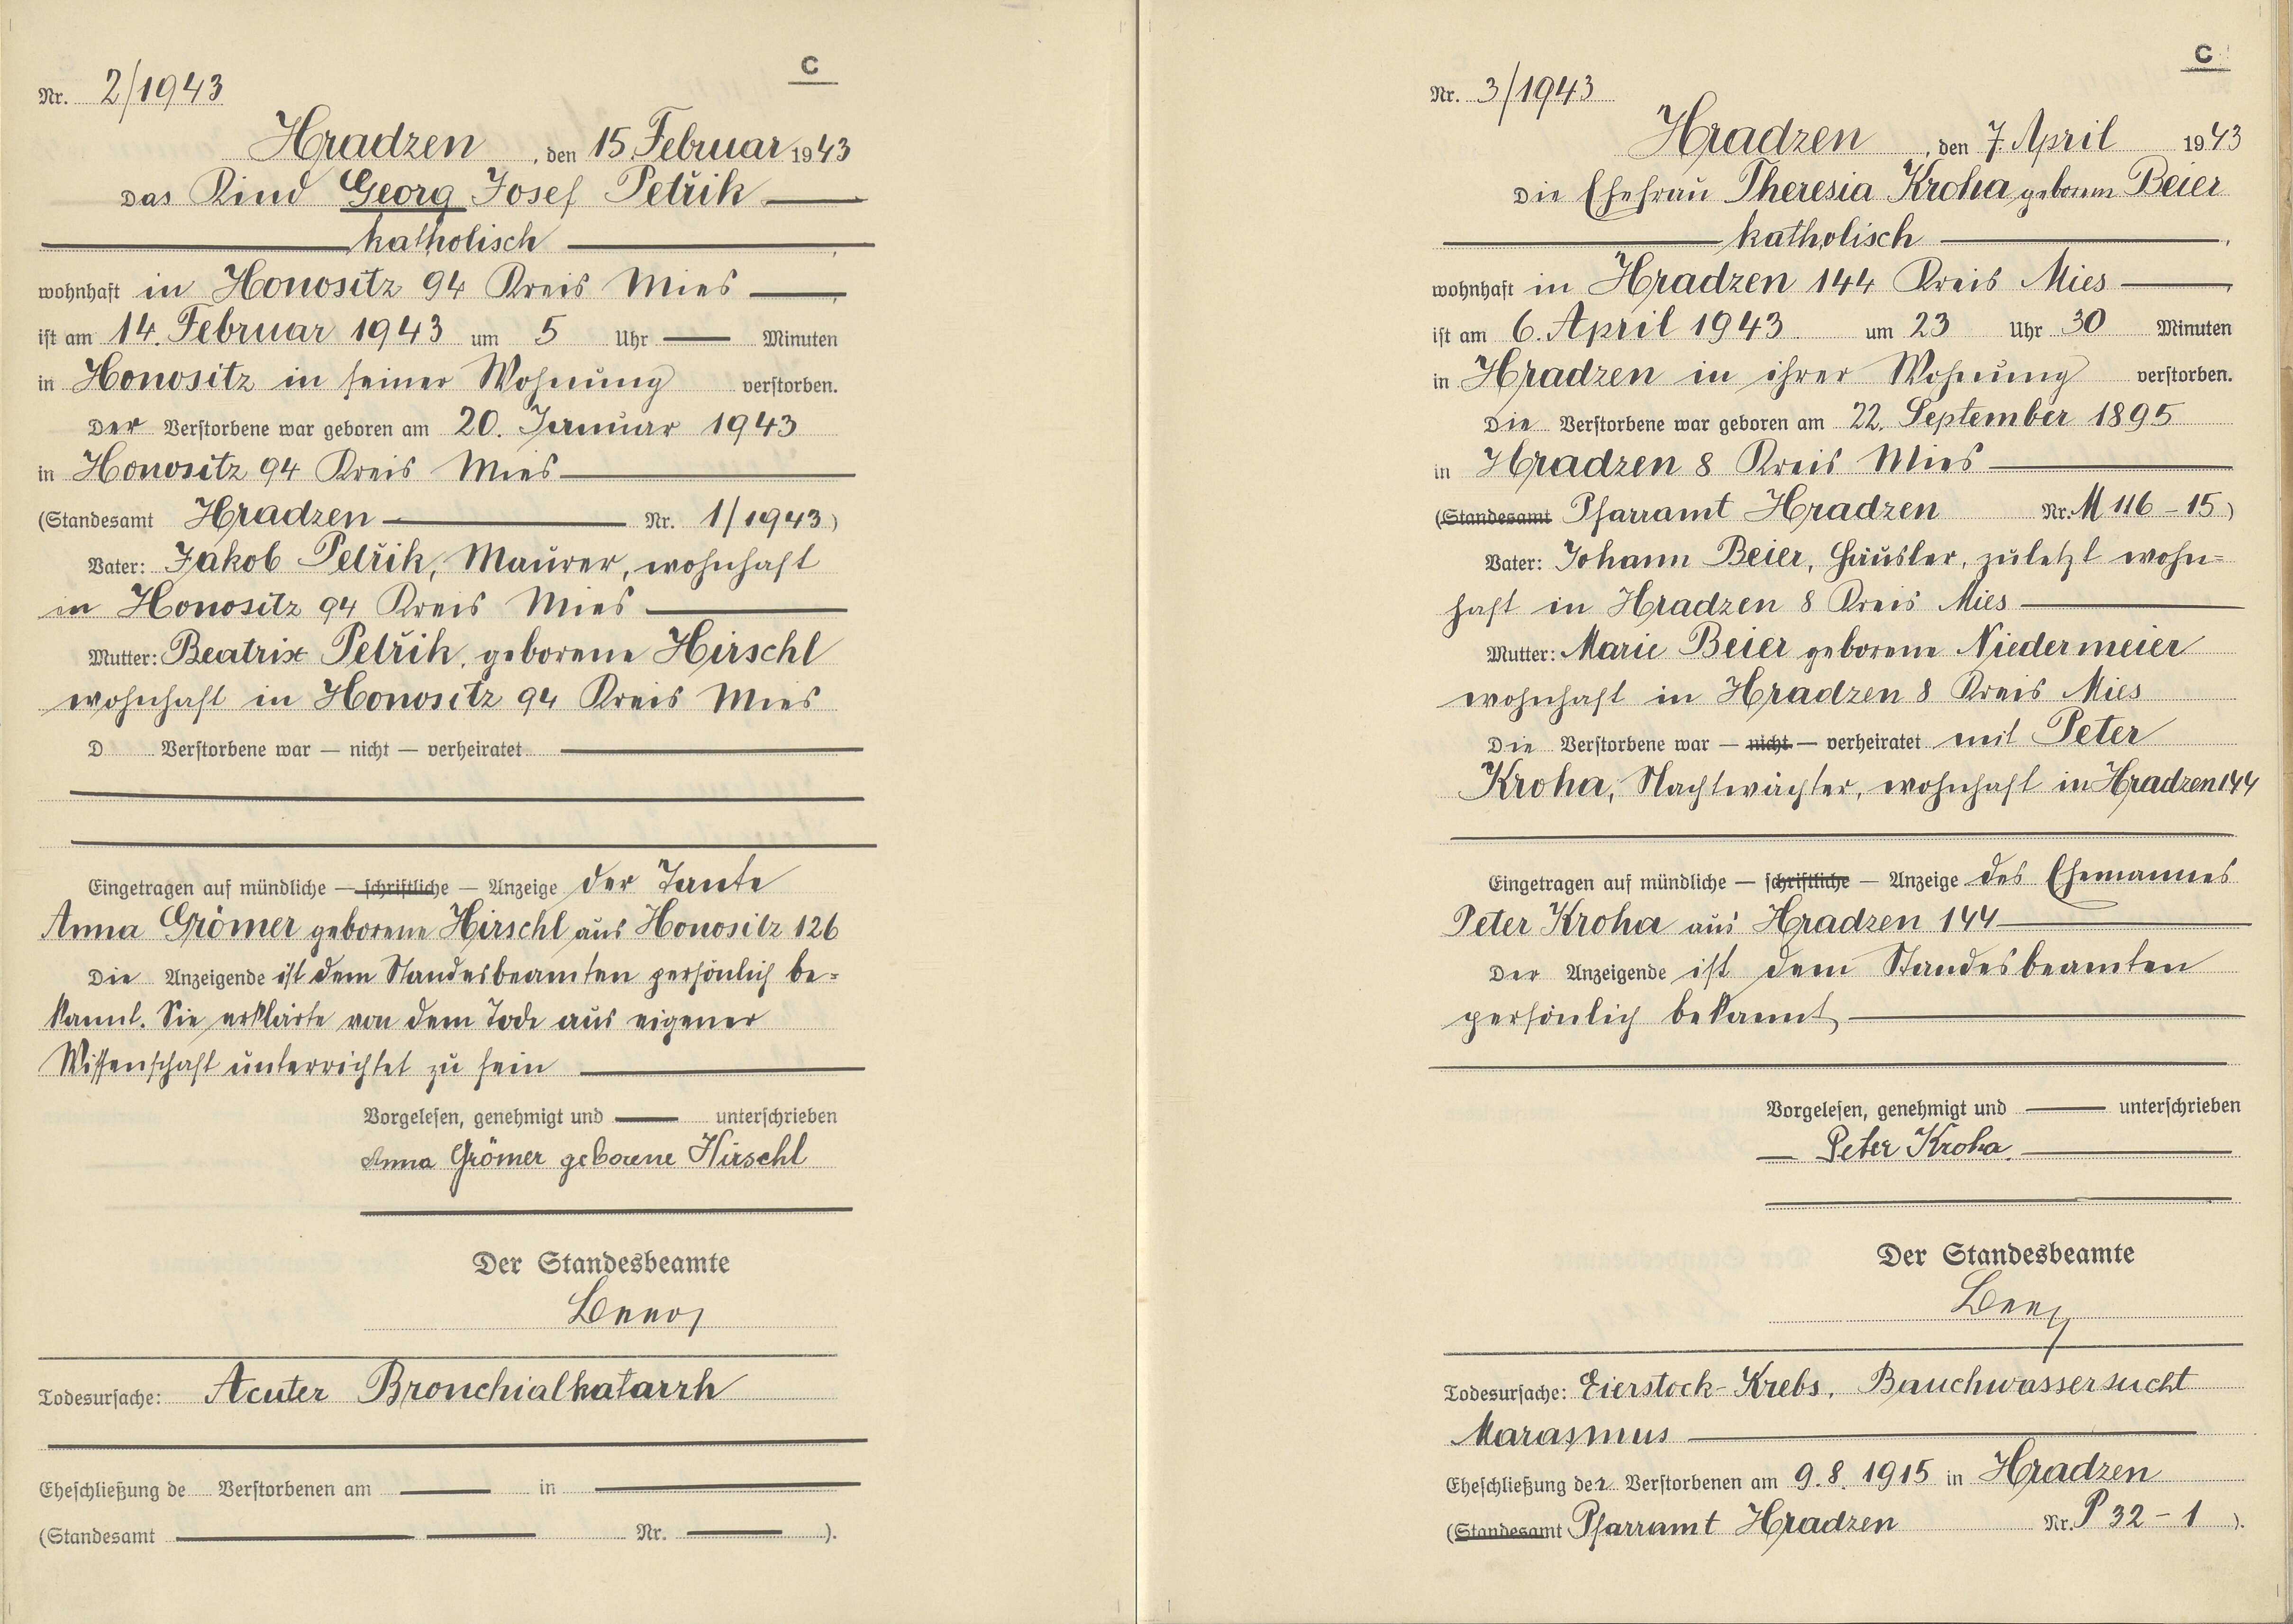 C
Nr. 2/1943
Hradzen, den 15. Februar 1943
Das Kind Georg Josef Petřik
katholisch
wohnhaft in Honositz 94 Kreis Mies
ist am 14. Februar 1943 um 5 Uhr Minuten
in Honositz in seiner Wohnung verstorben.
Der Verstorbene war geboren am 20. Januar 1943
in Honositz 94 Kreis Mies
(Standesamt Hradzen Nr. 1/1943)
Vater: Jakob Petřik, Maurer, wohnhaft
in Honositz 94 Kreis Mies
Mutter: Beatrix Petřik, geborene Hirschl
wohnhaft in Honositz 94 Kreis Mies
D Verstorbene war — nicht — verheiratet
Eingetragen auf mündliche — schriftliche — Anzeige der Tante
Anna Grömer geborene Hirschl aus Honositz 126
Die Anzeigende ist dem Standesbeamten persönlich be=
kannt. Sie erklärte von dem Tode aus eigener
Wissenschaft unterrichtet zu sein
Vorgelesen, genehmigt und unterschrieben
Anna Grömer geborene Hirschl
Der Standesbeamte
Todesursache: Acuter Bronchialkatarrh
Eheschließung de Verstorbenen am in
(Standesamt Nr. ).
C
Nr. 3/1943
Hradzen, den 7. April 1943
Die Ehefrau Theresia Kroha geborene Beier
katholisch
wohnhaft in Hradzen 144 Kreis Mies
ist am 6. April 1943 um 23 Uhr 30 Minuten
in Hradzen in ihrer Wohnung verstorben.
Die Verstorbene war geboren am 22. September 1895
in Hradzen 8 Kreis Mies
(Standesamt Pfarramt Hradzen Nr. M 116 - 15)
Vater: Johann Beier, Häusler, zuletzt wohn=
haft in Hradzen 8 Kreis Mies
Mutter: Marie Beier geborene Niedermeier
wohnhaft in Hradzen 8 Kreis Mies
Die Verstorbene war — nicht — verheiratet mit Peter
Kroha, Nachtwächter, wohnhaft in Hradzen 144
Eingetragen auf mündliche — schriftliche — Anzeige des Ehemannes
Peter Kroha aus Hradzen 144
Der Anzeigende ist dem Standesbeamten
persönlich bekannt
Vorgelesen, genehmigt und unterschrieben
Peter Kroha.
Der Standesbeamte
Todesursache: Eierstock-Krebs, Bauchwassersucht
Marasmus
Eheschließung der Verstorbenen am 9. 8. 1915 in Hradzen
(Standesamt Pfarramt Hradzen Nr. P 32 - 1 ).